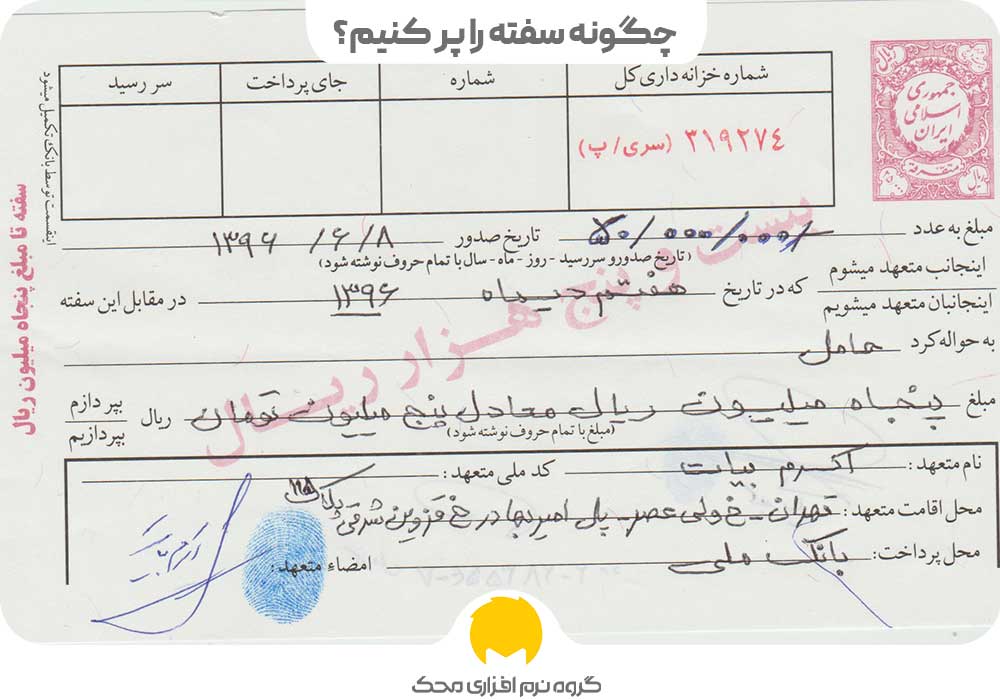 چگونه سفته را پر کنیم؟
ریال
جمهوری
اسلامی
ایران
متفرقه
ریال
شماره خزانه داری کل
شماره
جای پرداخت
سر رسید
۳۱۹۲۷۴ (سری/ پ)
اینقسمت توسط بانک تکمیل میشود
سفته تا مبلغ پنجاه میلیون ریال
بیست و پنج هزار ریال
مبلغ به عدد ۵۰/۰۰۰/۰۰۰/ تاریخ صدور ۱۳۹۶/۶/۸
(تاریخ صدور و سررسید - روز - ماه - سال با تمام حروف نوشته شود)
اینجانب متعهد میشوم
اینجانبان متعهد میشویم
که در تاریخ هفتم دیماه ۱۳۹۶ در مقابل این سفته
به حواله کرد حامل
مبلغ پنجاه میلیون ریال معادل پنج میلیون تومان ریال
بپردازم
بپردازیم
(مبلغ با تمام حروف نوشته شود)
نام متعهد: اکرم بیات کد ملی متعهد:
محل اقامت متعهد: تهران - خ ولی عصر - پل امیربهادر خ قزوینی شرقی پلاک
محل پرداخت: بانک ملی امضاء متعهد:
اکرم بیات
گروه نرم افزاری محک